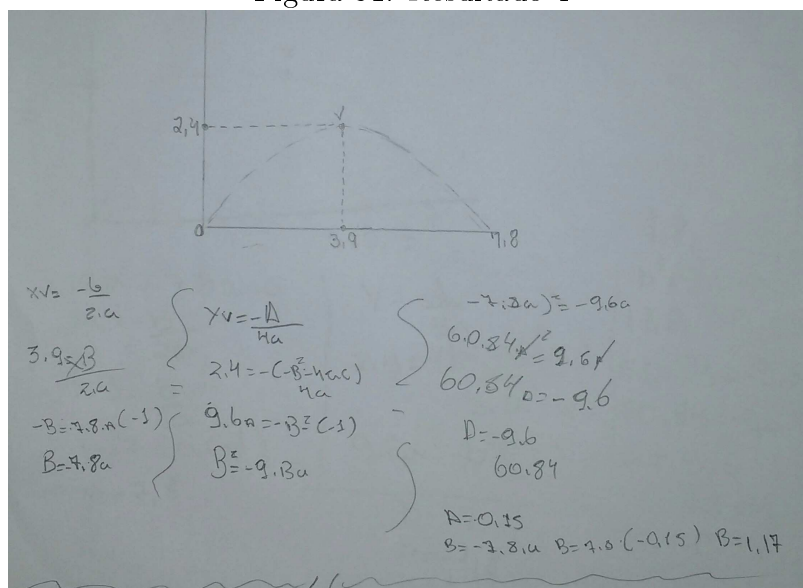 2,4
V
0
3,9
7,8
xv= -b
2.a
3.9=-B
2.a
-B=7.8.A(-1)
B=-7,8a
YV=-Δ
4a
2.4=-(-B²-4ac)
4a
9.6A=-B²(-1)
B²=-9.Ba
-7.8a)²=-9.6a
60.84
60.84 a=-9.6
D=-9.6
60.84
A=-0,15
B=-7.8.a B=7.8.(-0,15) B=1,17